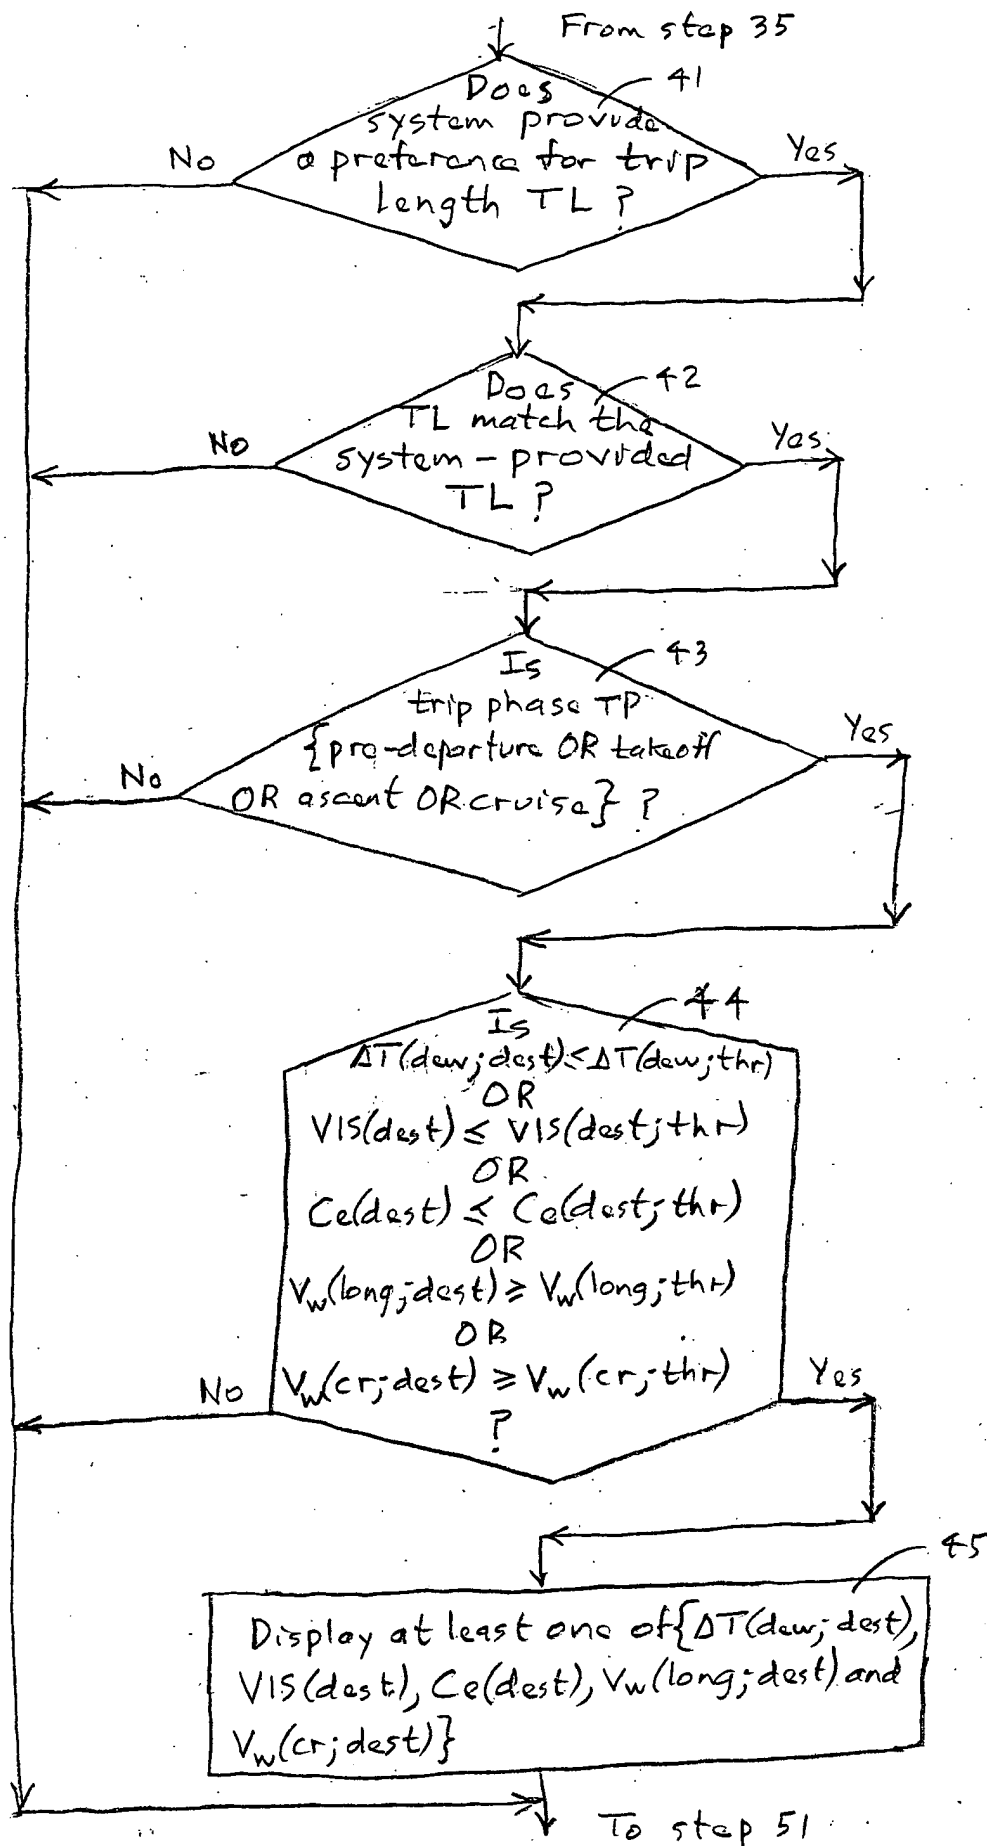 From step 35
41
Does
system provide
a preference for trip
length TL ?
No
Yes
42
Does
TL match the
system-provided
TL ?
No
Yes
43
Is
trip phase TP
{pre-departure OR takeoff
OR ascent OR cruise} ?
No
Yes
44
Is
ΔT(dew;dest)≤ΔT(dew;thr)
OR
VIS(dest) ≤ VIS(dest;thr)
OR
Ce(dest) ≤ Ce(dest;thr)
OR
Vw(long;dest) ≥ Vw(long;thr)
OR
Vw(cr;dest) ≥ Vw(cr;thr)
?
No
Yes
45
Display at least one of{ΔT(dew;dest),
VIS(dest), Ce(dest), Vw(long;dest) and
Vw(cr;dest)}
To step 51